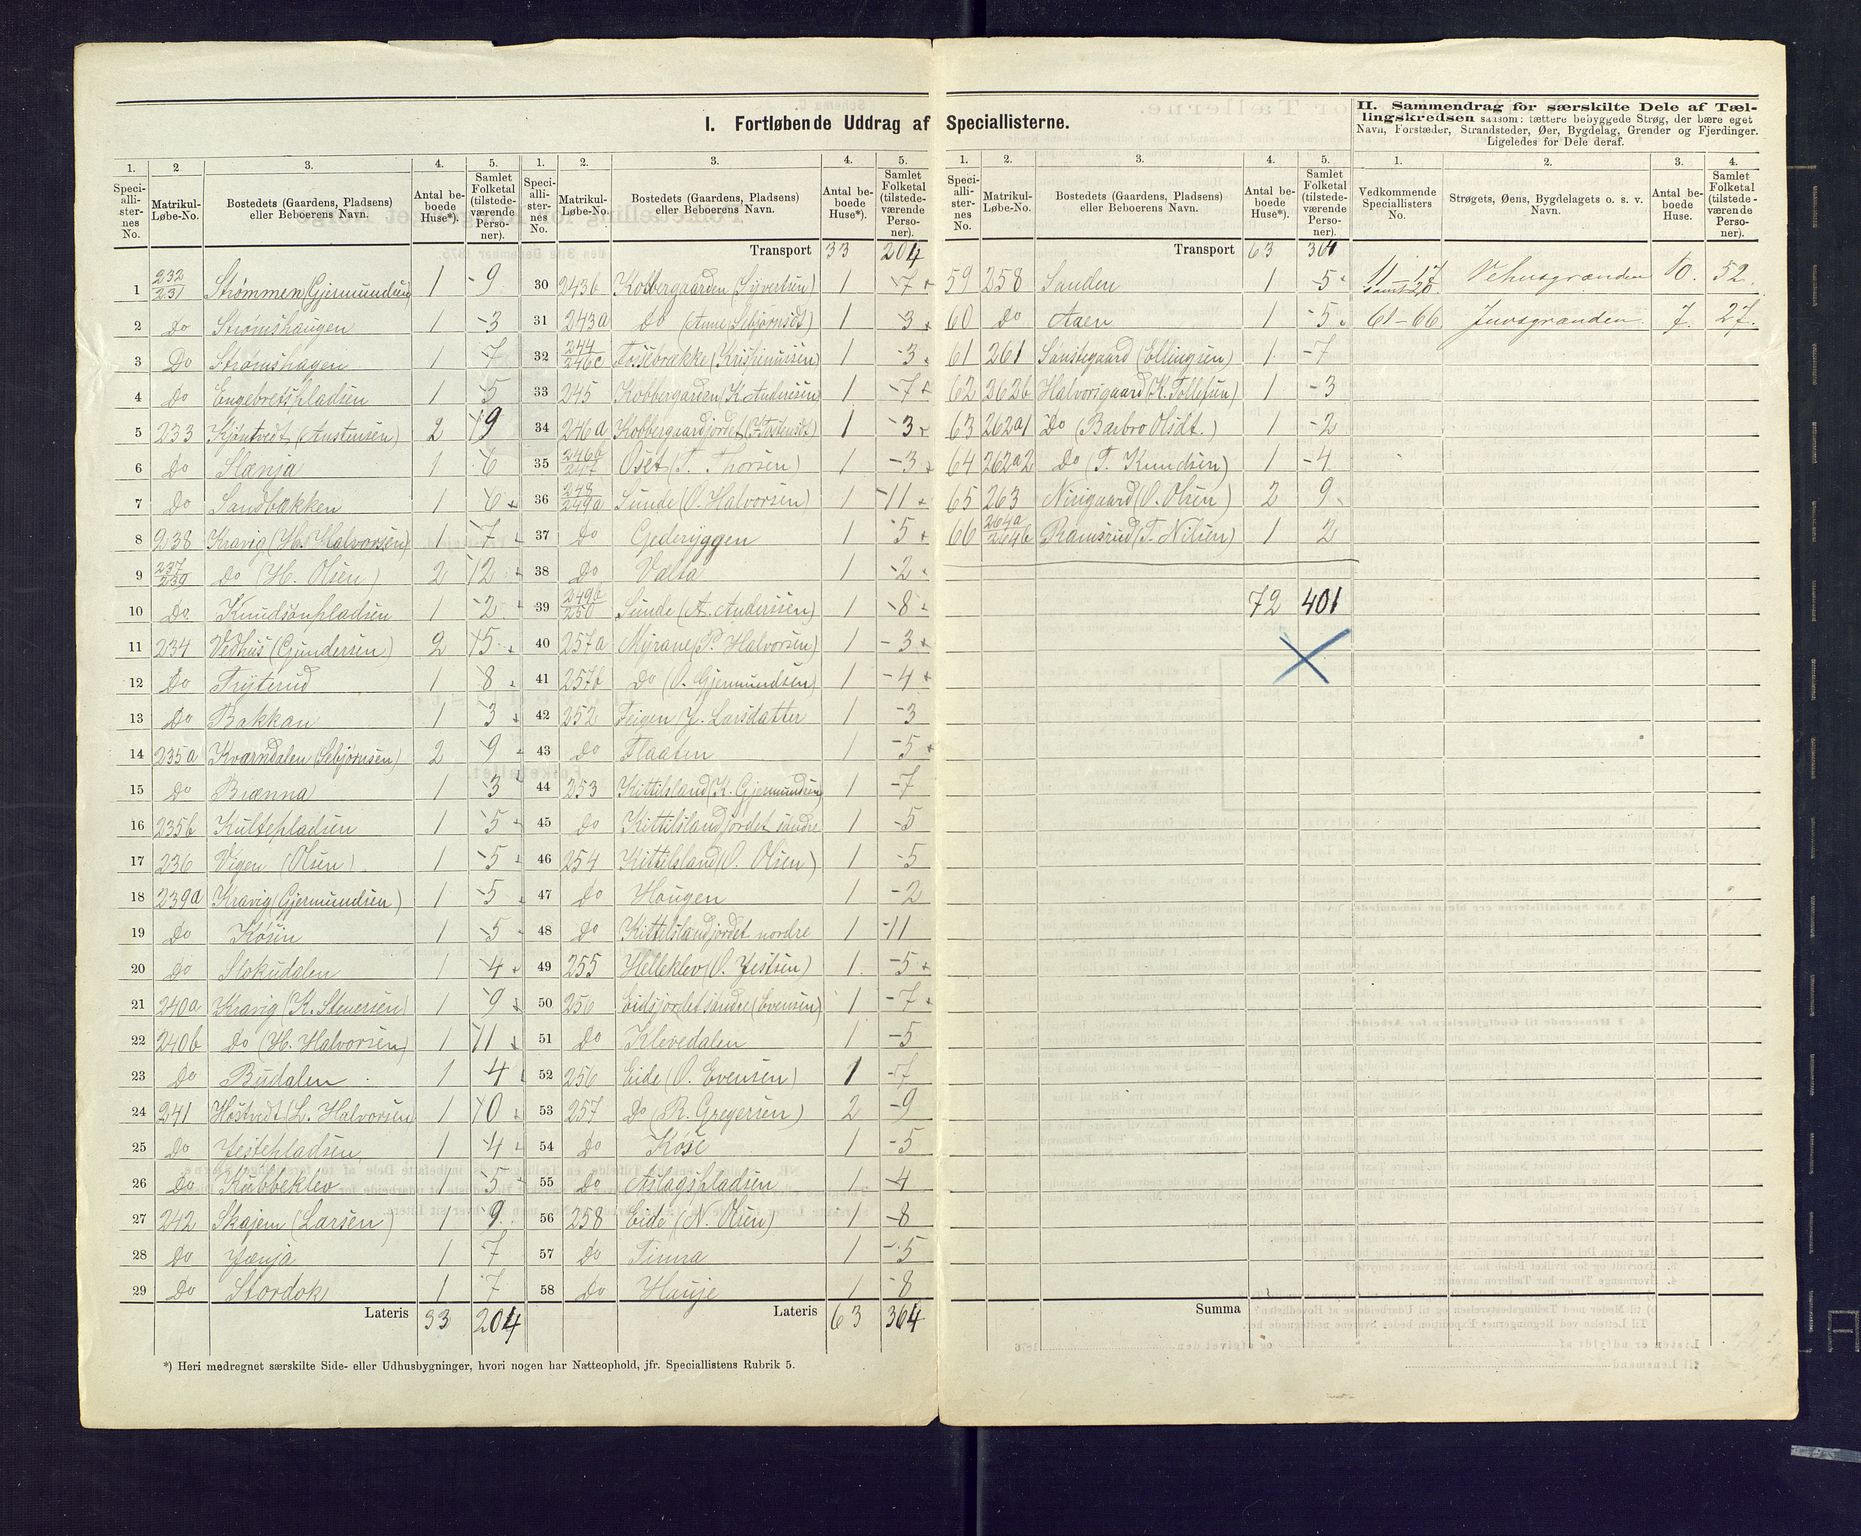 I. Fortløbende Uddrag af Speciallisterne.
II. Sammendrag for særskilte Dele af Tællingskredsen saasom: tættere bebyggede Strøg, der bære eget
Navn, Forstæder, Strandsteder, Øer, Bygdelag, Grender og Fjerdinger.
Ligeledes for Dele deraf.
1. 2 3. 4. 5.
Speciallisternes No. Matrikul-Løbe-No. Bostedets (Gaardens, Pladsens) eller Beboerens Navn. Antal beboede Huse*). Samlet Folketal (tilstedeværende Personer).
1 232/231 Strømmen (Gjermundsen) 1 -9
2 Do Strømshaugen 1 -3
3 Do Strømshagen 1 -7
4 Do Engebretspladsen 1 -5
5 233 Kjøntvedt (Austensen) 2 19
6 Do Slænja 1 6
7 Do Sandbakken 1 6
8 238 Kravig (H. Halvorsen) 1 -7
9 237/239 Do (H. Olsen) 2 12
10 Do Knudsønpladsen 1 -2
11 234 Vedhus (Gundersen) 2 15
12 Do Tryterud 1 8
13 Do Bakkan 1 3
14 235a Kværndalen (Sebjørnsen) 2 9
15 Do Brænna 1 3
16 235b Kultepladsen 1 5
17 236 Vigen (Olsen) 1 -5
18 239a Kravig (Gjermundsen) 1 5
19 Do Køsin 1 -5
20 Do Slokudalen 1 4
21 240a Kravig (K. Stenersen) 1 9
22 240b Do (H. Halvorsen) 1 11
23 Do Budalen 1 4
24 241 Høstvedt (L. Halvorsen) 1 10
25 Do Jestepladsen 1 4
26 Do Kubbeklev 1 5
27 242 Skajem (Larsen) 1 9
28 Do Jænja 1 7
29 Do Stordok 1 7
Lateris 33 204
1. 2. 3. 4. 5.
Speciallisternes No. Matrikul-Løbe-No. Bostedets (Gaardens, Pladsens) eller Beboerens Navn. Antal beboede Huse*). Samlet Folketal (tilstedeværende Personer).
Transport 33 204
30 243b Kobbergaarden (Sivertsen) 1 -7
31 243a Do (Anne Sebjørnsdt) 1 -3
32 244/246c Fosebrække (Kristiansen) 1 -3
33 245 Kobbergarden (K. Andersen) 1 -7
34 246a Kobbergaardjordet (K. Tostensdt) 1 -3
35 246b/247 Oset (T. Thorsen) 1 -3
36 248/249a Sunde (O. Halvorsen) 1 -11
37 Do Gederyggen 1 -5
38 Do Valta 1 -2
39 249b/250 Sunde (A. Anderssen) 1 -8
40 257a Myrane (P. Halvorsen) 1 -3
41 257b Do (O. Gjermundsen) 1 -4
42 252 Feigen J. Larsdatter 1 -3
43 Do Flaaten 1 -5
44 253 Kittilsland (K. Gjermundsen) 1 -7
45 Do Kittilslandjordet søndre 1 -5
46 254 Kittilsland (O. Olsen) 1 -5
47 Do Haugen 1 -2
48 Do Kittilslandjordet nordre 1 -11
49 255 Helleklev (O. Jestsen) 1 -5
50 256 Eidsjordet søndre (Evensen) 1 -7
51 Do Klevedalen 1 -5
52 256 Eide (O. Evensen) 1 -7
53 257 Do (R. Gregersen) 2 -9
54 Do Køse 1 -5
55 Do Aslagspladsen 1 -4
56 258 Eide (N. Olsen) 1 -8
57 Do Tinna 1 -5
58 Do Hauje 1 -8
Lateris 63 364
1. 2. 3. 4. 5.
Speciallisternes No. Matrikul-Løbe-No. Bostedets (Gaardens, Pladsens) eller Beboerens Navn. Antal beboede Huse*). Samlet Folketal (tilstedeværende Personer).
Transport 63 364
59 258 Sanden 1 -5
60 Do Aaen 1 -5
61 261 Sanstegaard (Ellingsen) 1 -7
62 262b Halvorsgaard (K. Tollefsen) 1 -3
63 262a1 Do (Barbro Olsdt.) 1 -2
64 262a2 Do (T. Knudsen) 1 -4
65 263 Nirigaard (O. Olsen) 2 9
66 264a/264b Ramsrud (T. Nilsen) 1 2
72 401
Summa
1. 2. 3. 4.
Vedkommende Speciallisters No. Strøgets, Øens, Bygdelagets o. s. v. Navn. Antal beboede Huse. Samlet Folketal (tilstedeværende Personer).
11-17 samt 20 Vehusgrænden 10. 52.
61-66 Juvsgrænden 7. 27.
*) Heri medregnet særskilte Side- eller Udhusbygninger, hvori nogen har Natteophold, jfr. Speciallistens Rubrik 5.